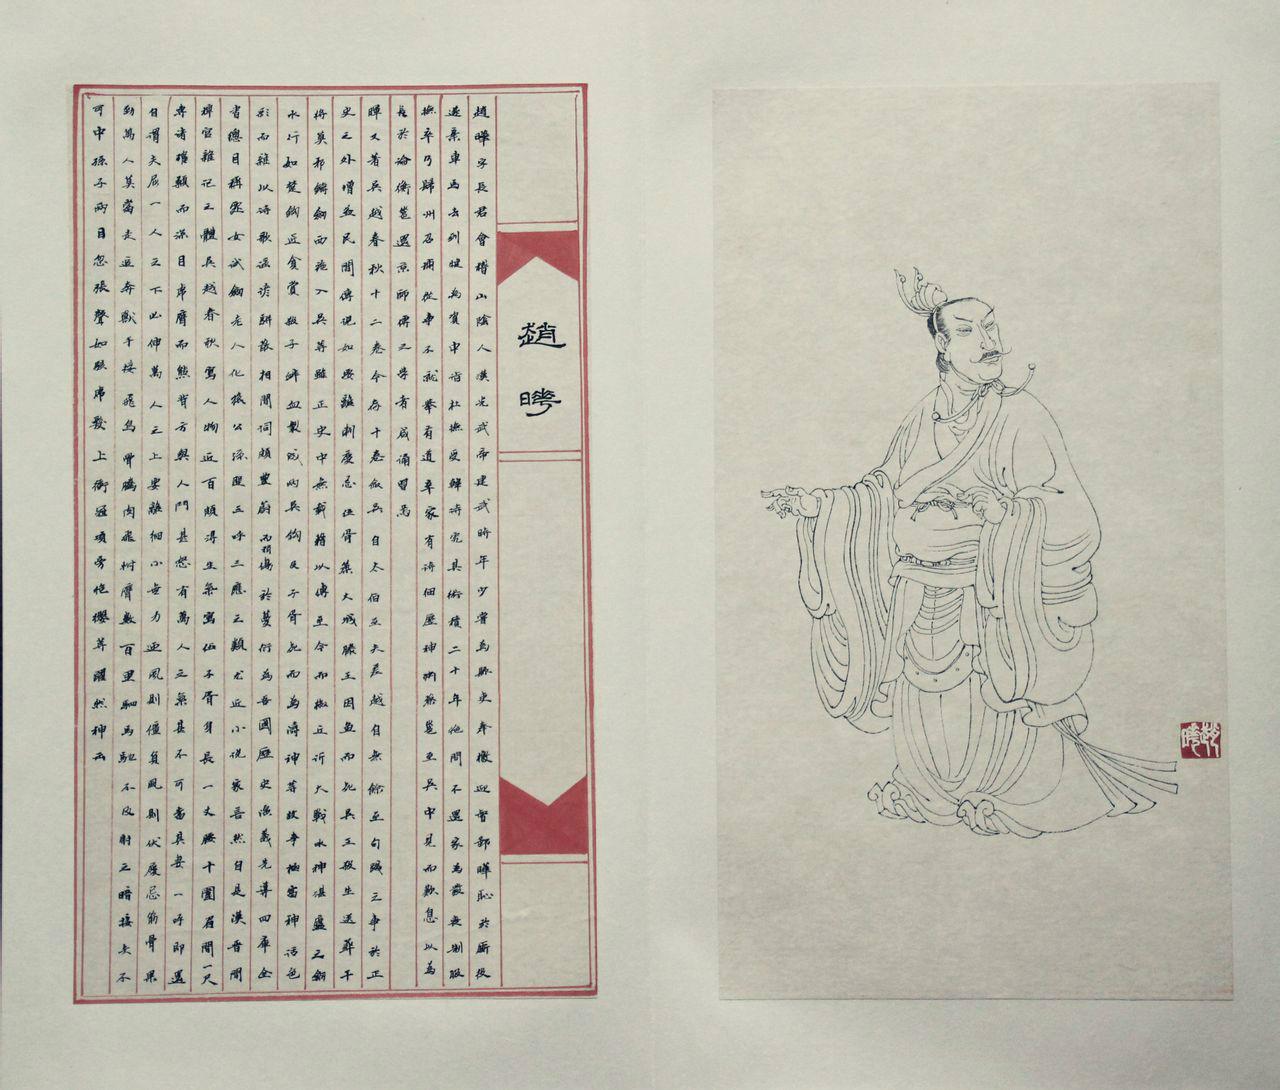 趙曄
趙曄字長君會稽山陰人漢光武帝建武時年少嘗為縣吏奉檄迎督郵曄恥於廝役
遂棄車馬去到犍為資中詣杜撫受韓詩究其術積二十年絕問不還家為發喪制服
撫卒乃歸州召補從事不就舉有道卒家有詩細歷神淵蔡邕至吳中見而歎息以為
長於論衡邕還京師傳之學者咸誦習焉
曄又著吳越春秋十二卷今存十卷敘吳自太伯至夫差越自無餘至句踐之事於正
史之外增益民間傳說如要離刺慶忌伍胥築大城滕王因魚而死吳王殺生送葬干
將莫邪鑄劍而飛入吳等雖正史中無載藉以傳至今而椒丘訢大戰水神湛盧之劍
水行如楚鈎匠貪賞殺子衅血製成兩吳鈎及子胥死而為濤神等故事極富神話色
彩而雜以詩歌謠諺駢散相間詞頗豐蔚而稍傷於蔓衍為吾國歷史演義先導四庫全
書總目稱處女試劍老人化猿公孫聖三呼三應之類尤近小說家言然自是漢晉間
稗官雜記之體吳越春秋寫人物近百頗得生氣寫伍子胥身長一丈腰十圍眉間一尺
專諸碓顙而深目虎膺而熊背方與人鬥甚怒有萬人之氣甚不可當其妻一呼即還
自謂夫屈一人之下必伸萬人之上要離細小無力迎風則僵負風則伏慶忌筋骨果
勁萬人莫當走追奔獸手接飛鳥骨騰肉飛拊膺數百里駟馬馳不及射之暗接矢不
可中孫子兩目忽張聲如駭虎發上衝冠項旁絕纓等躍然神云
趙曄